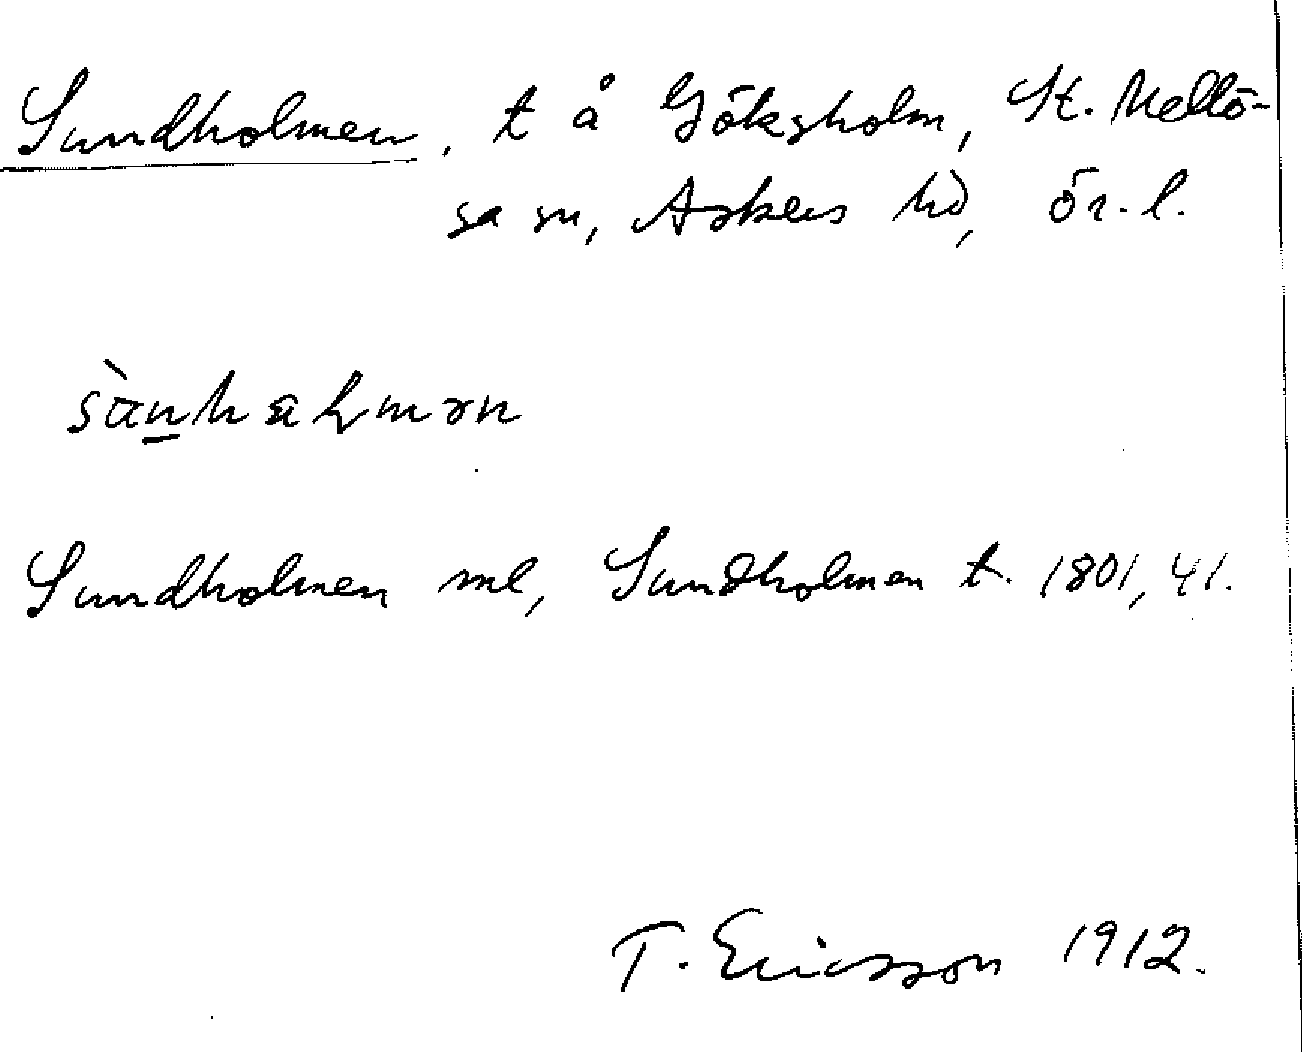 Sundholmen, t å Göksholm, St. Mellö-
sa sn, Askers hd, ör. l.
Sundholmen ml, Sundholmen t. 1801, 41.
T. Ericsson 1912.